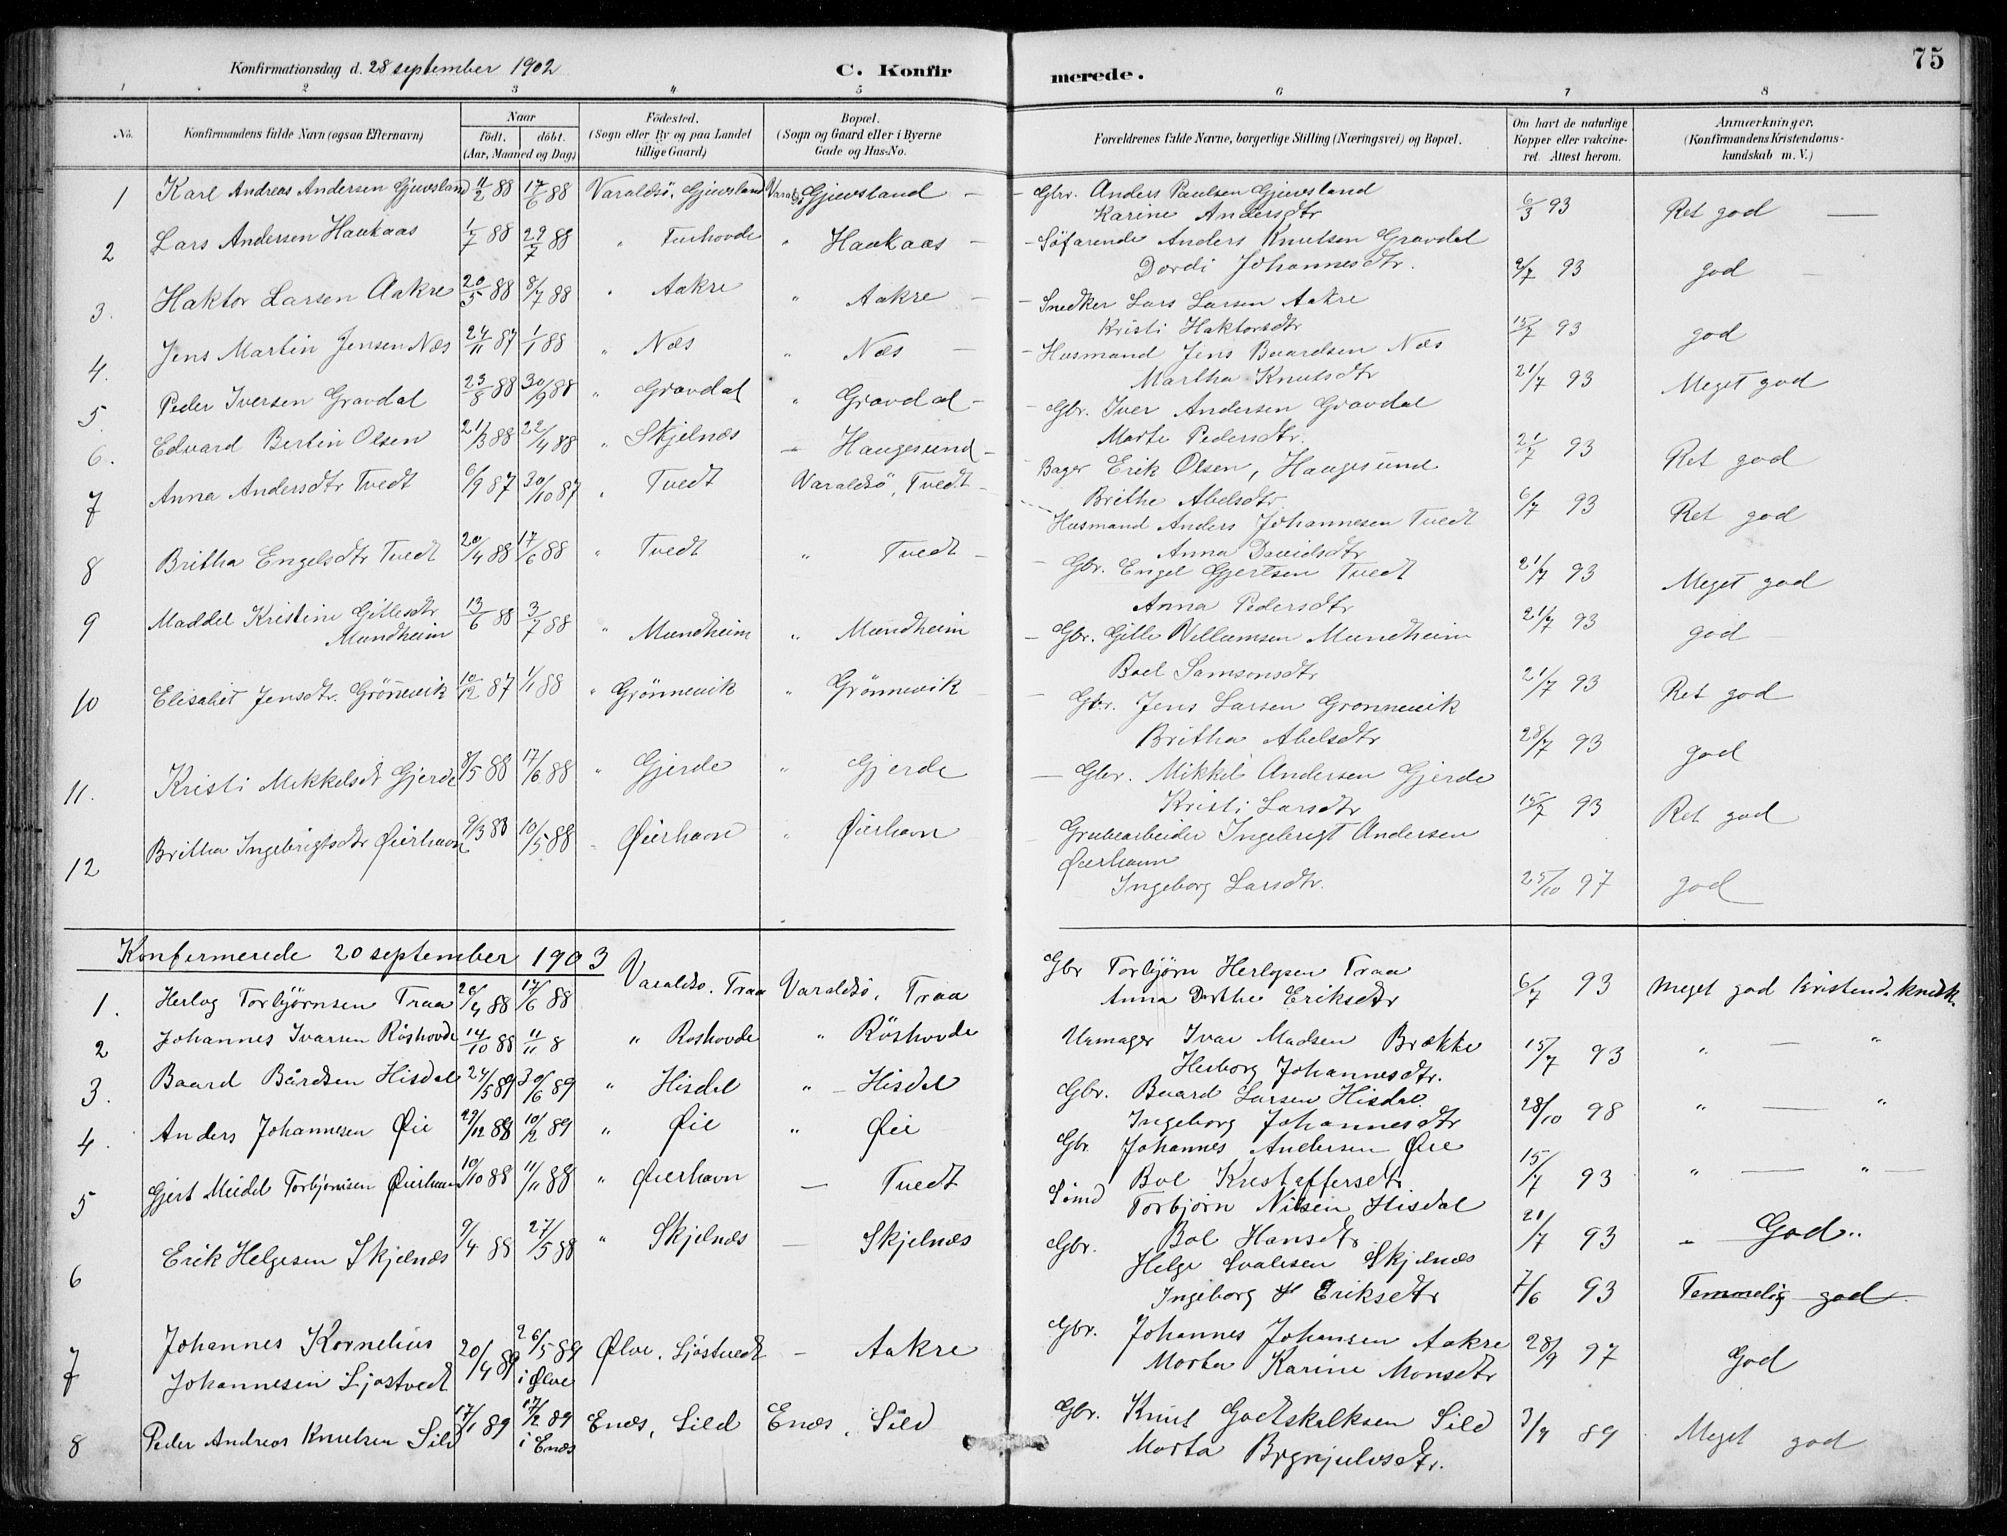 75
Konfirmationsdag d. 28 september 1902 C. Konfirmerede.
1 2 3 4 5 6 7 8
No. Konfirmandens fulde Navn (ogsaa Efternavn) Naar födt. döbt. (Aar, Maaned og Dag) Födested. (Sogn eller By og paa Landet tillige Gaard) Bopæl. (Sogn og Gaard eller i Byerne Gade og Hus-No. Forældrenes fulde Navne, borgerlige Stilling (Næringsvei) og Bopæl. Om havt de naturlige Kopper eller vakcineret. Attest herom. Anmærkninger. (Konfirmandens Kristendomskundskab m. V.)
1 Karl Andreas Andersen Gjuvsland 11/2 88 17/6 88 Varaldsö, Gjuvsland Varaldsö Gjuvsland – Gbr. Anders Paulsen Gjuvsland
Karine Andersdtr 6/3 93 Ret god
2 Lars Andersen Haukaas 1/7 88 29/7 88 " Turhovde " Haukaas – Söfarende Anders Knutsen Gravdal
Dordi Johannesdtr. 2/7 93 god
3. Haktor Larsen Aakre 20/5 88 8/7 88 " Aakre " Aakre – Snedker Lars Larsen Aakre
Kristi Haktorsdtr 15/7 93 god
4. Jens Martin Jensen Næs 24/11 87 1/1 88 " Næs " Næs – Husmand Jens Baardsen Næs
Martha Knutsdtr 21/7 93 Meget god
5. Peder Iversen Gravdal 23/8 88 30/9 88 " Gravdal " Gravdal – Gbr. Iver Andersen Gravdal
Marte Pedersdtr. 21/7 93 Ret god
6. Edvard Bertin Olsen 21/3 88 22/4 88 " Skjelnæs – Haugesund – Bager Erik Olsen, Haugesund
Brithe Abelsdtr 6/7 93 Ret god
7 Anna Andersdtr Tvedt 6/9 87 30/10 87 " Tvedt Varaldsö, Tvedt – Husmand Anders Johannesen Tvedt
Anna Davidsdtr
8 Britha Engelsdtr Tvedt 20/4 88 17/6 88 " Tvedt " Tvedt – Gbr. Engel Gjertsen Tvedt 21/7 93 Meget god
Anna Pedersdtr
9 Maddel Kristine Gittesdtr Mundheim 13/6 88 3/7 88 " Mundheim " Mundheim – Gbr. Gitle Villumsen Mundheim 21/7 93 god
Boel Samsonsdtr
10 Elisabet Jensdtr. Grönnevik 10/12 87 1/1 88 " Grönnevik " Grönnevik – Gbr. Jens Larsen Grønnevik 21/7 93 Ret god
Britha Abelsdtr 28/7 93 god
11. Kristi Mikkelsdt Gjerde 8/5 88 17/6 88 " Gjerde " Gjerde – Gbr. Mikkel Andersen Gjerde
Kristi Larsdtr 15/7 93 Ret god
12 Britha Ingebrigtsdtr Øierhavn 9/3 88 10/5 88 " Øierhavn " Øierhavn Grubearbeider Ingebrigt Andersen
Øierhavn
Ingeborg Larsdtr. 25/10 97 god
Konfirmerede 20 september 1903
1. Herlog Torbjörnsen Traa 26/4 88 17/6 88 Varaldsö. Traa Varaldsö, Traa Gbr Torbjørn Herlogsen Traa
Anna Dorthe Eriksdtr 6/7 93 Meget god kristend. kndsk.
2 Johannes Ivarsen Röshovde 14/10 88 11/11 8 " Roshovde " Röshovde Urmager Ivar Madsen Brække
Herborg Johannesdtr. 15/7 93 " — "
3. Baard Bårdsen Hisdal 24/5 89 30/6 89 " Hisdal " – Hisdal Gbr. Baard Larsen Hisdal
Ingeborg Johannesdtr 28/10 98 " — "
4. Anders Johannesen Øie 29/12 88 10/2 89 " Øie " Øie Gbr. Johannes Andersen Øie
Bol Kristaffersdtr 15/7 93 " — " —
5 Gjert Meidel Torbjørnsen Øierhavn 10/10 88 11/11 88 " Øierhavn — Tvedt Sömd Torbjørn Nilsen Hisdal
Bol Hansdtr 21/7 93 " God "
6 Erik Helgesen Skjelnæs 9/4 88 27/5 88 " Skjelnæs — Skjelnæs Gbr. Helge Svalesen Skjelnæs
Ingeborg Eriksdtr 7/6 93 Temmelig god
7 Johannes Kornelius Johannesen Ljostvedt 20/4 89 26/5 89 i Ølve Ølve, Ljostvedt – Aakre Gbr. Johannes Johansen Aakre
Marta Karine Monsdtr 28/9 97 God
8 Peder Andreas Knutsen Sild 17/1 89 17/2 89 i Enæs Enæs, Sild Enæs, Sild Gbr. Knut Godtskalksen Sild
Marta Brynjulvsdtr. 3/7 89 Meget god